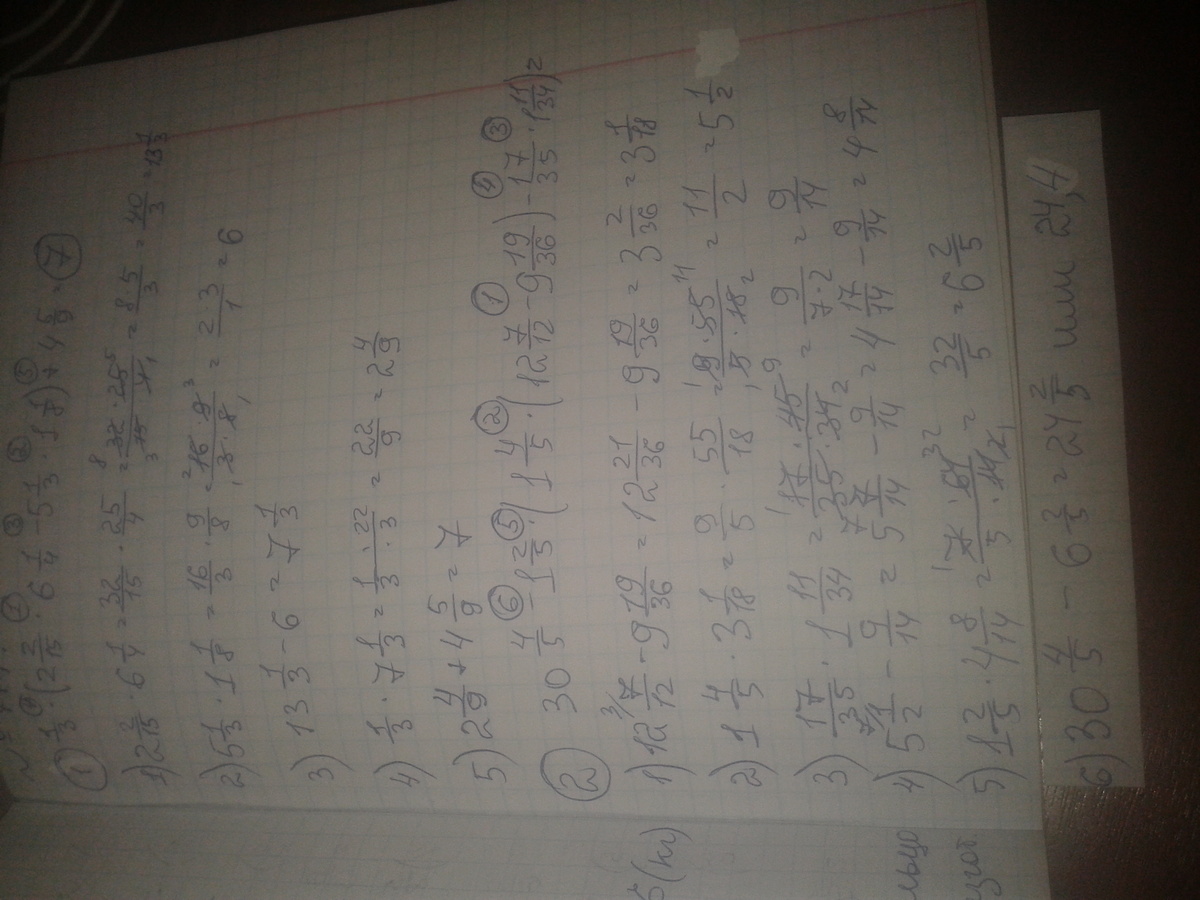 ① 1/3 · (2 2/15 · 6 1/4 - 5 1/3 · 1 1/8) + 4 5/9 = ⑦
1) 2 2/15 · 6 1/4 = 32/15 · 25/4 = 32 · 25/15 · 4 = 8·5/3 = 40/3 = 13 1/3
2) 5 1/3 · 1 1/8 = 16/3 · 9/8 = 16 · 9/3 · 8 = 2·3/1 = 6
3) 13 1/3 - 6 = 7 1/3
4) 1/3 · 7 1/3 = 1 · 22/3 · 3 = 22/9 = 2 4/9
5) 2 4/9 + 4 5/9 = 7
② 30 4/5 - 1 2/5 · (1 4/5 · (12 7/12 - 9 19/36) - 17/35 · 1 11/34) =
1) 12 7/12 - 9 19/36 = 12 21/36 - 9 19/36 = 3 2/36 = 3 1/18
2) 1 4/5 · 3 1/18 = 9/5 · 55/18 = 9 · 55/5 · 18 = 11/2 = 5 1/2
3) 17/35 · 1 11/34 = 17 · 45/35 · 34 = 9/7·2 = 9/14
4) 5 1/2 - 9/14 = 5 7/14 - 9/14 = 4 17/14 - 9/14 = 4 8/14
5) 1 2/5 · 4 8/14 = 7 · 64/5 · 14 = 32/5 = 6 2/5
6) 30 4/5 - 6 2/5 = 24 2/5 или 24,4
(кг)
льцо